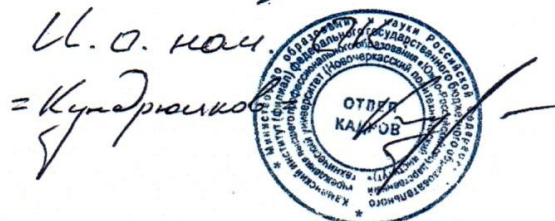 И. о. нач. ОК
= Кундрюцков
* Министерство образования и науки Российской Федерации *
Каменский институт (филиал) федерального государственного бюджетного образовательного
учреждения высшего профессионального образования «Южно-Российский государственный
технический университет (Новочеркасский политехнический институт)»
ОТДЕЛ
КАДРОВ